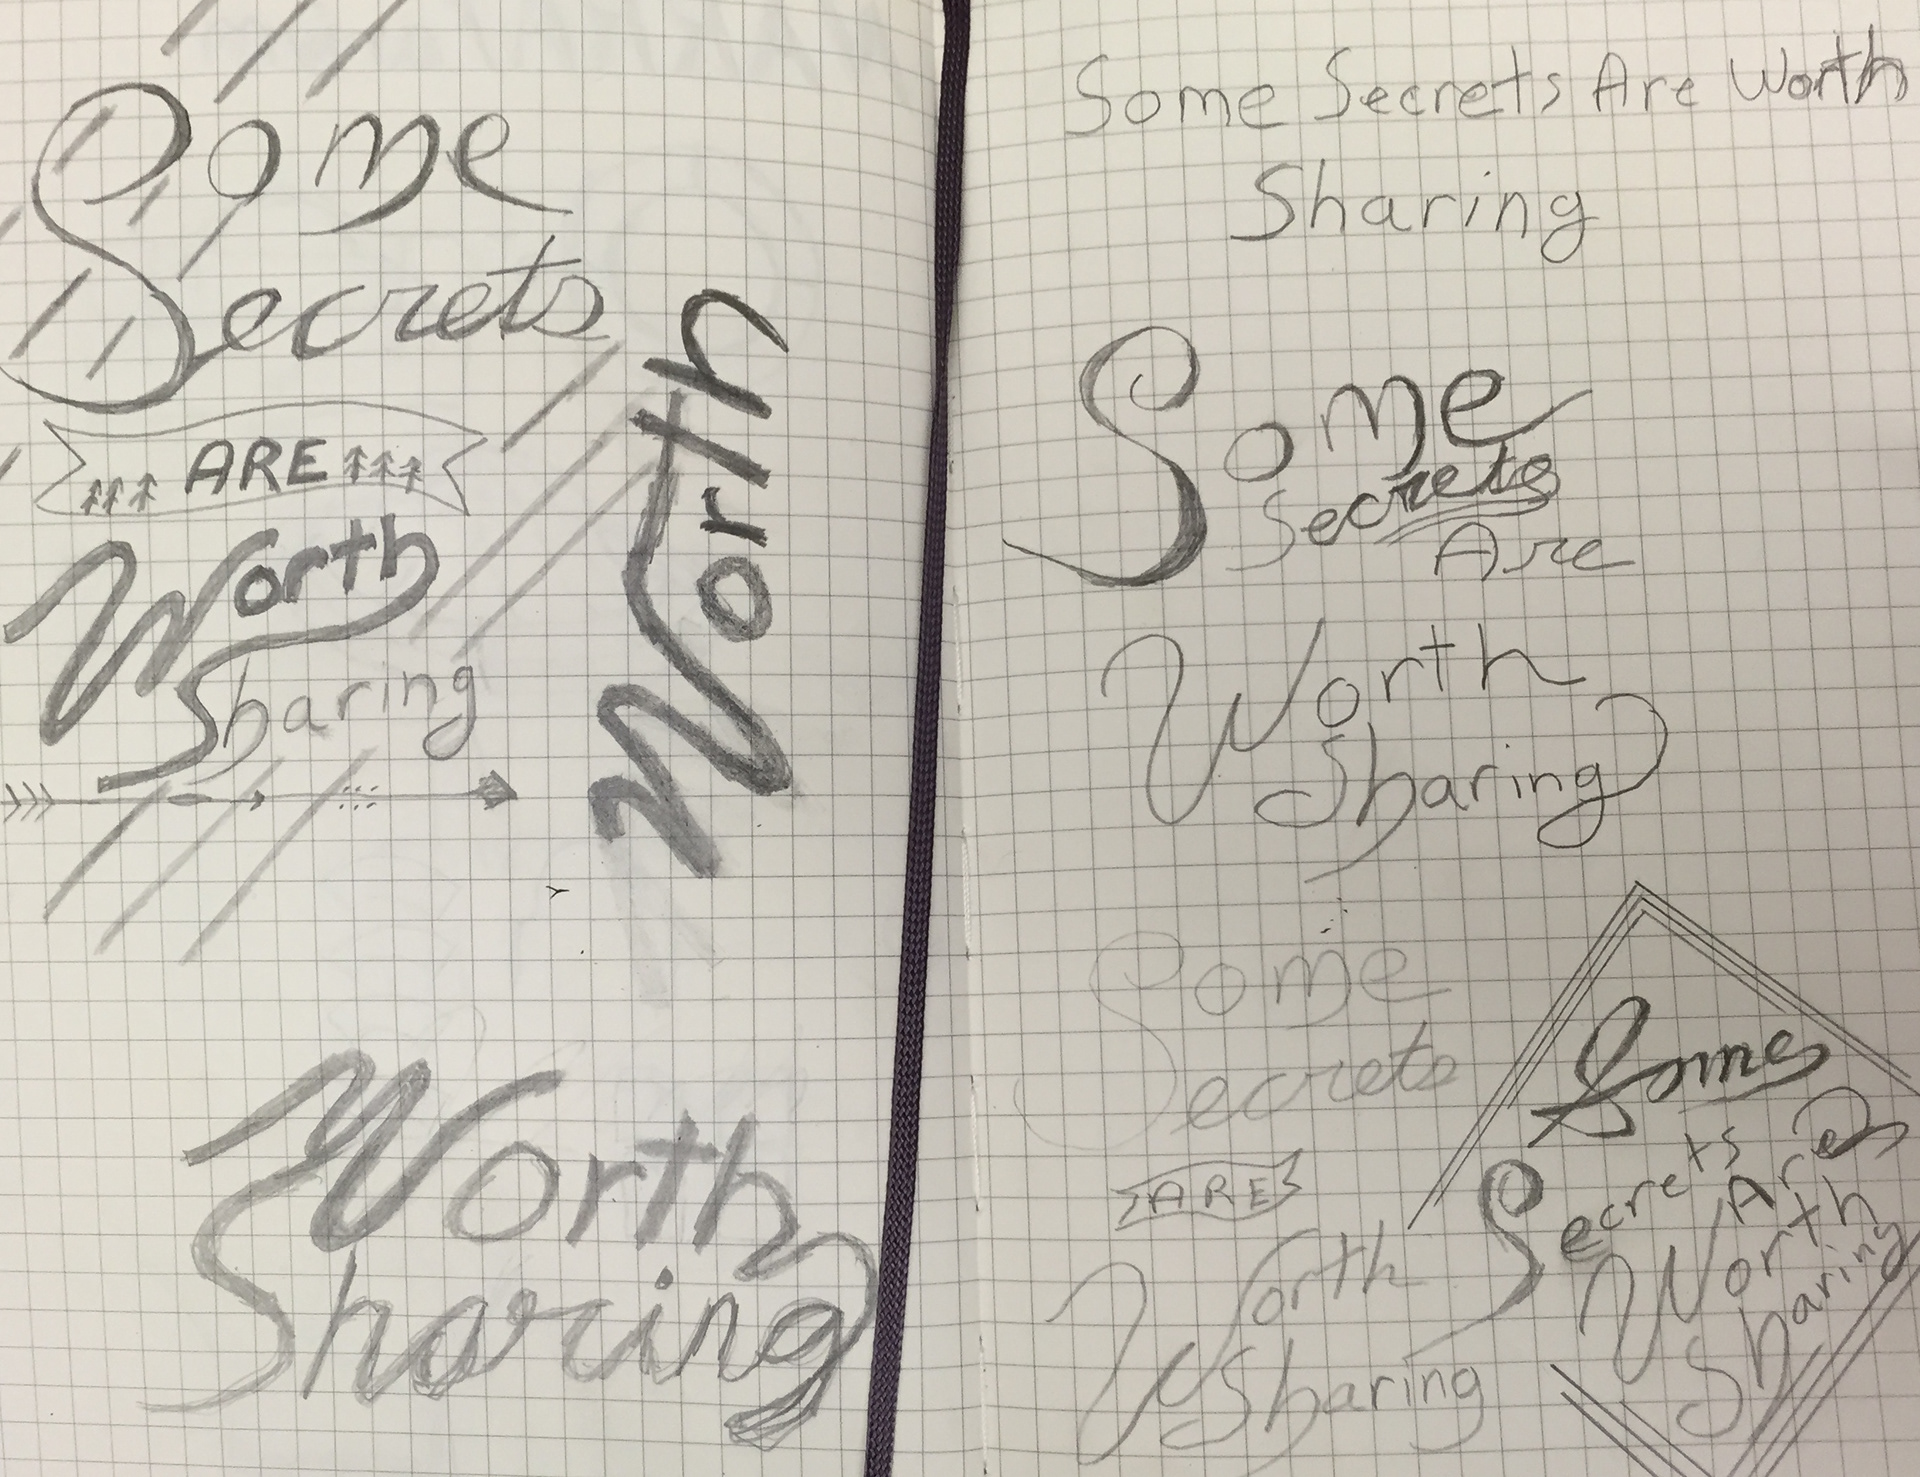 Some
Secrets
ARE
Worth
Sharing
Worth
Worth
Sharing
Some Secrets Are Worth
Sharing
Some
Secrets
Are
Worth
Sharing
Some
Secrets
ARE
Worth
Sharing
Some
Secrets
Are
Worth
Sharing